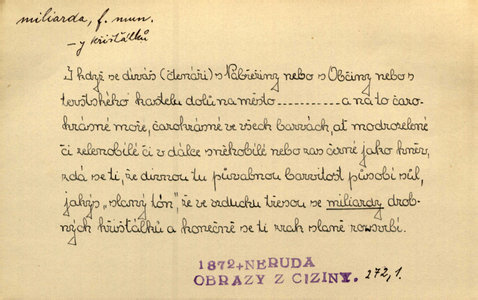 miliarda, f. num.
-y křišťálků
I když se díváš (čtenáři) s Nabřežiny nebo s Občiny nebo s
terstského kastelu dolů na město ............ a na to čaro-
krásné moře, čarokrásné ve všech barvách, ať modrozelené
či zelenobílé či v dálce sněhobílé nebo zas černé jako hněv,
zdá se ti, že divnou tu půvabnou barvitost působí sůl,
jakýs „slaný tón", že ve vzduchu třesou se miliardy drob-
ných křišťálků a konečně se ti zrak slaně rozsvrbí.
1872+NERUDA
OBRAZY Z CIZINY. 272,1.